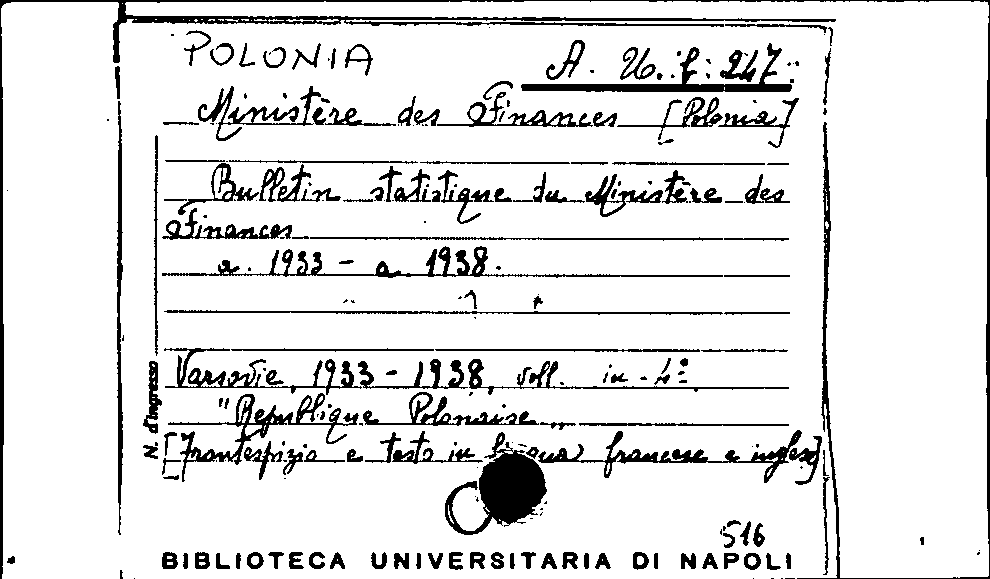 POLONIA
A. U. f: 247
Ministère des Finances [Polonia]
Bulletin statistique du Ministère des
Finances
a. 1933 - a. 1938.
Varsovie, 1933 - 1938, voll. in - 4º
"Republique Polonaise„
[Frontespizio e testo in lingua francese e inglese]
N. d'ingresso
516
BIBLIOTECA UNIVERSITARIA DI NAPOLI